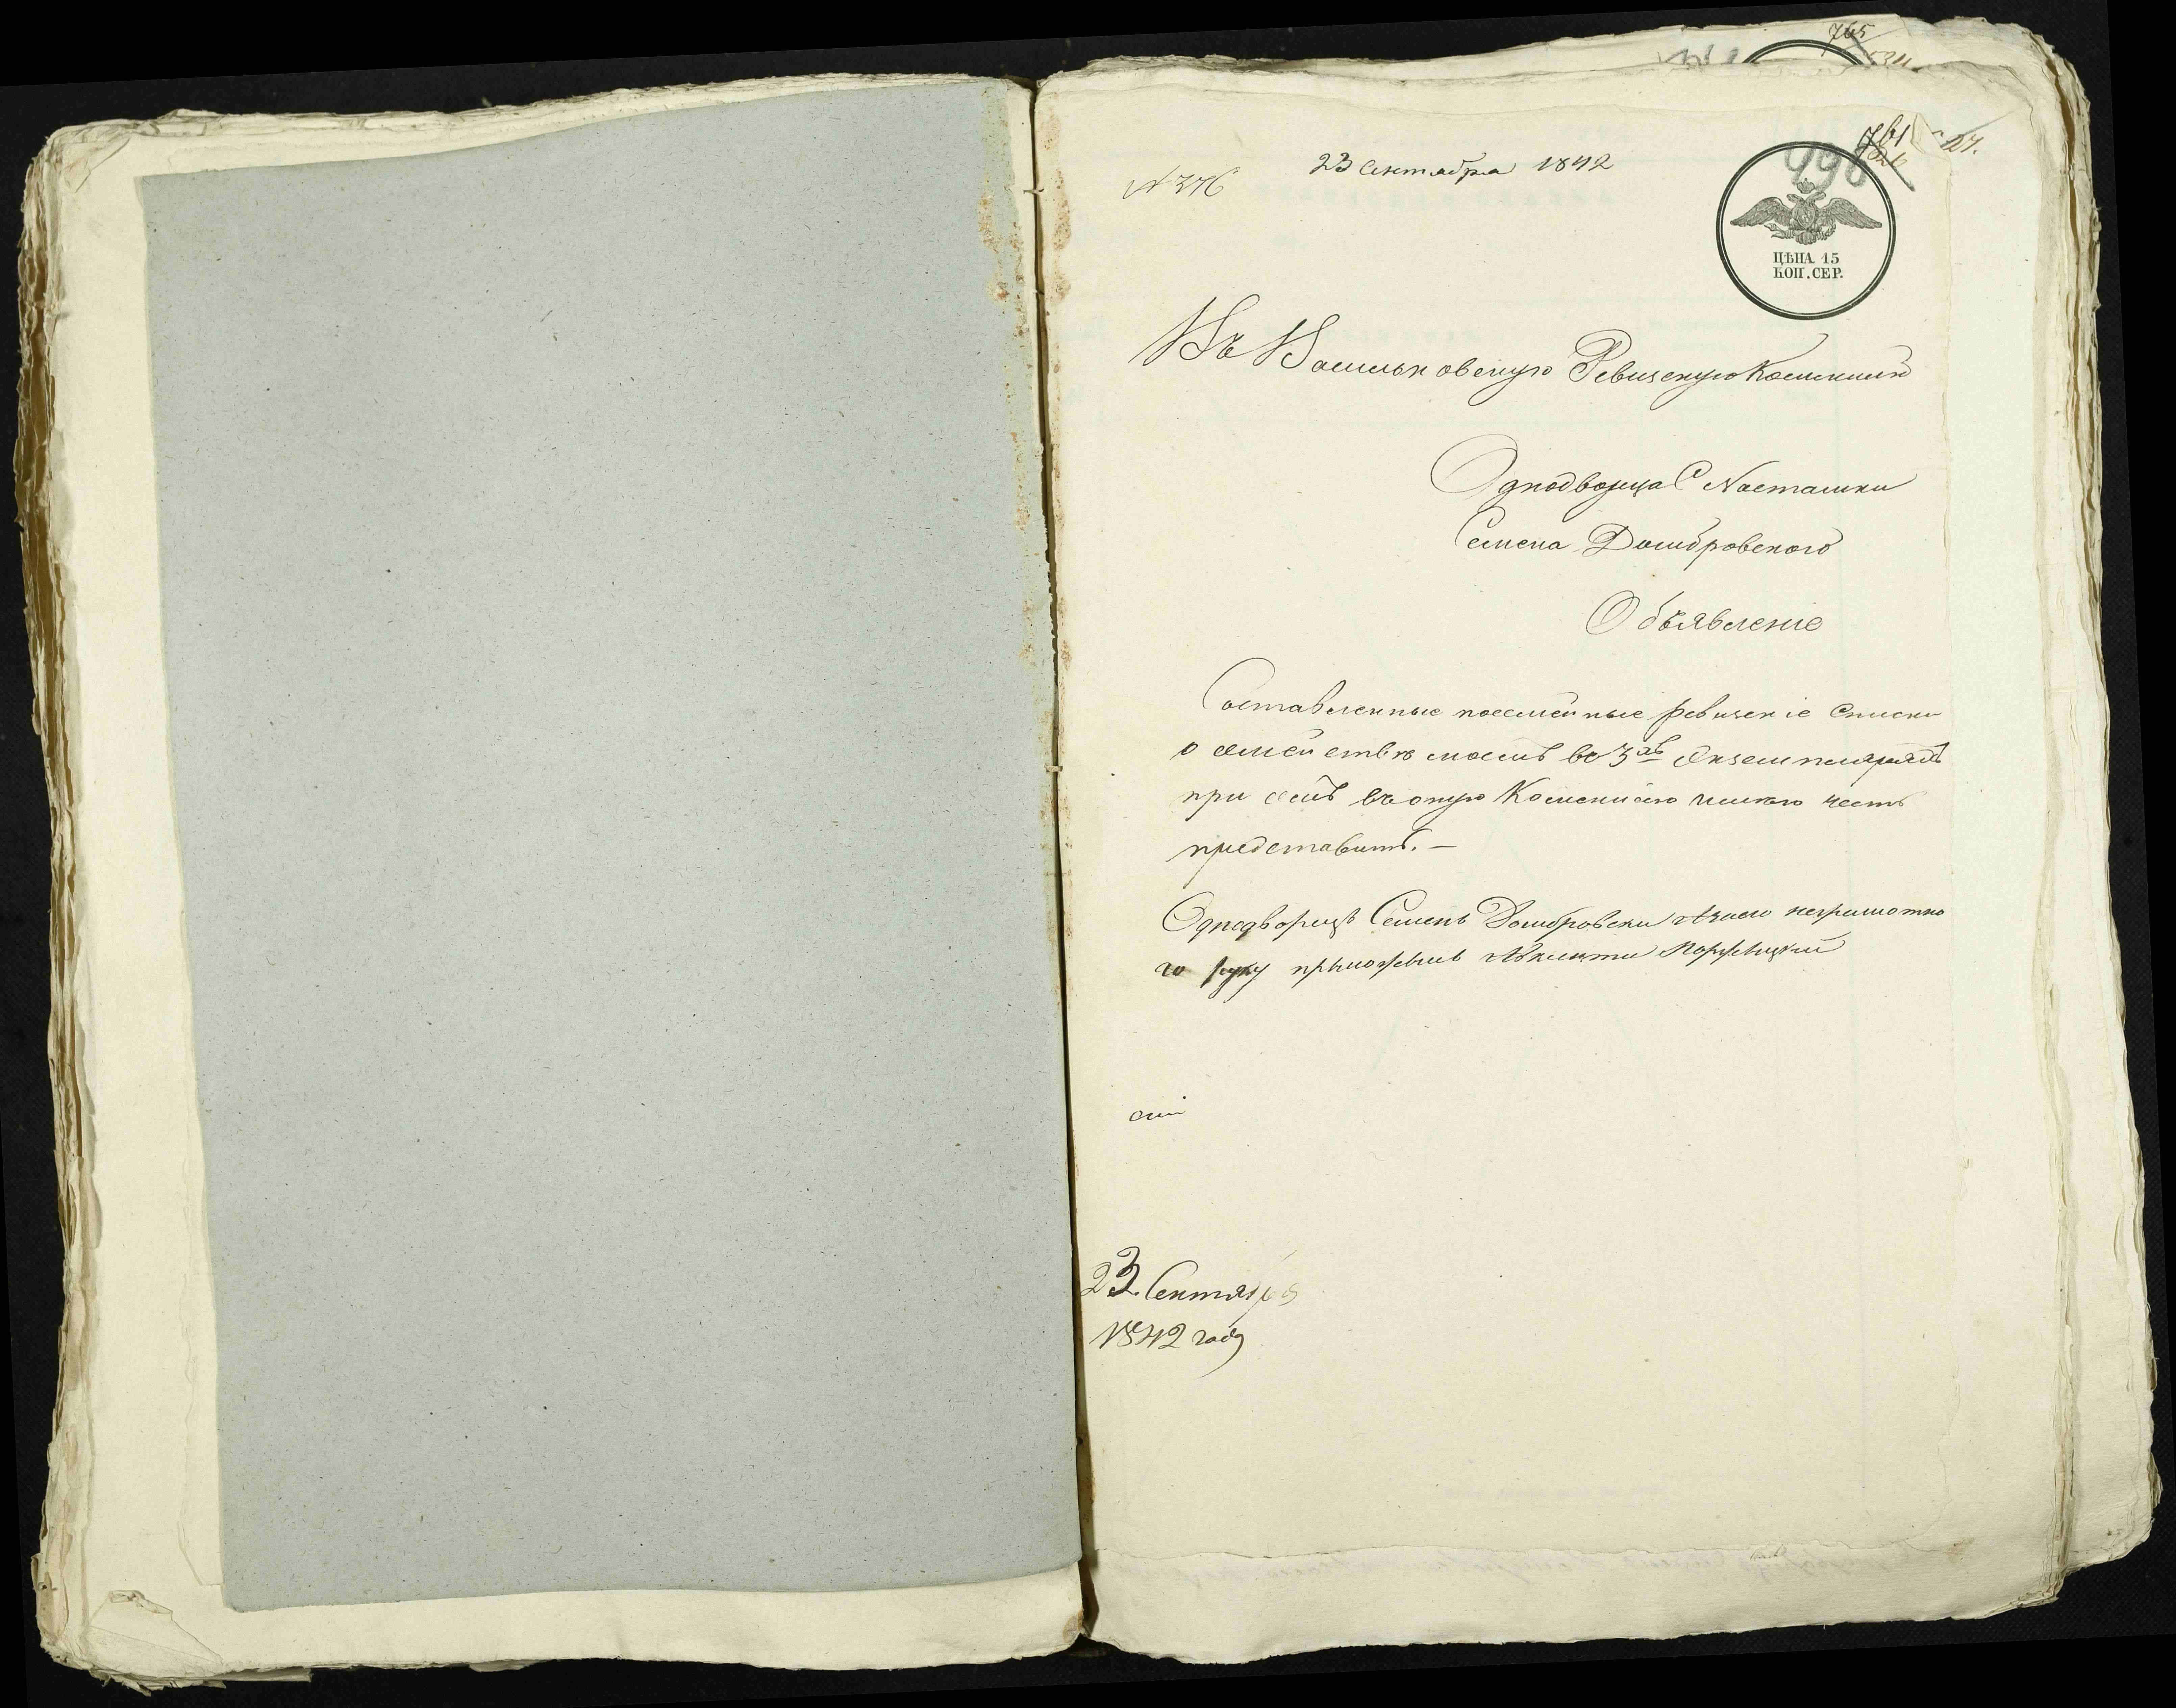 765
761
27.
№ 376
23 Сентября 1842
ЦѢНА 15
КОП. СЕР.
Въ Васильковскую Ревизскую Комисию
Однодворца С Насташки
Семена Домбровского
Объявленіе
Составленные посемейные ревизскіе Списки
о семействѣ моемъ во 3хъ Экземплярахъ
при семъ въ оную Коммисию имею честь
представить. —
Однодворецъ Семенъ Домбровски неграмотно
го руку приложилъ
23 Сентября
1842 года